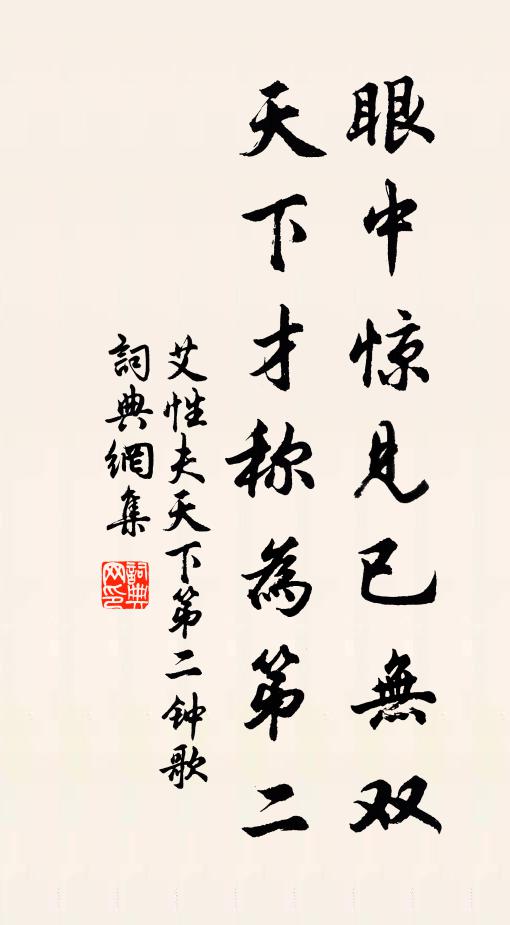 眼中惊見已無双
天下才称為第二
艾性夫天下第二钟歌
詞典網集
詞典网印